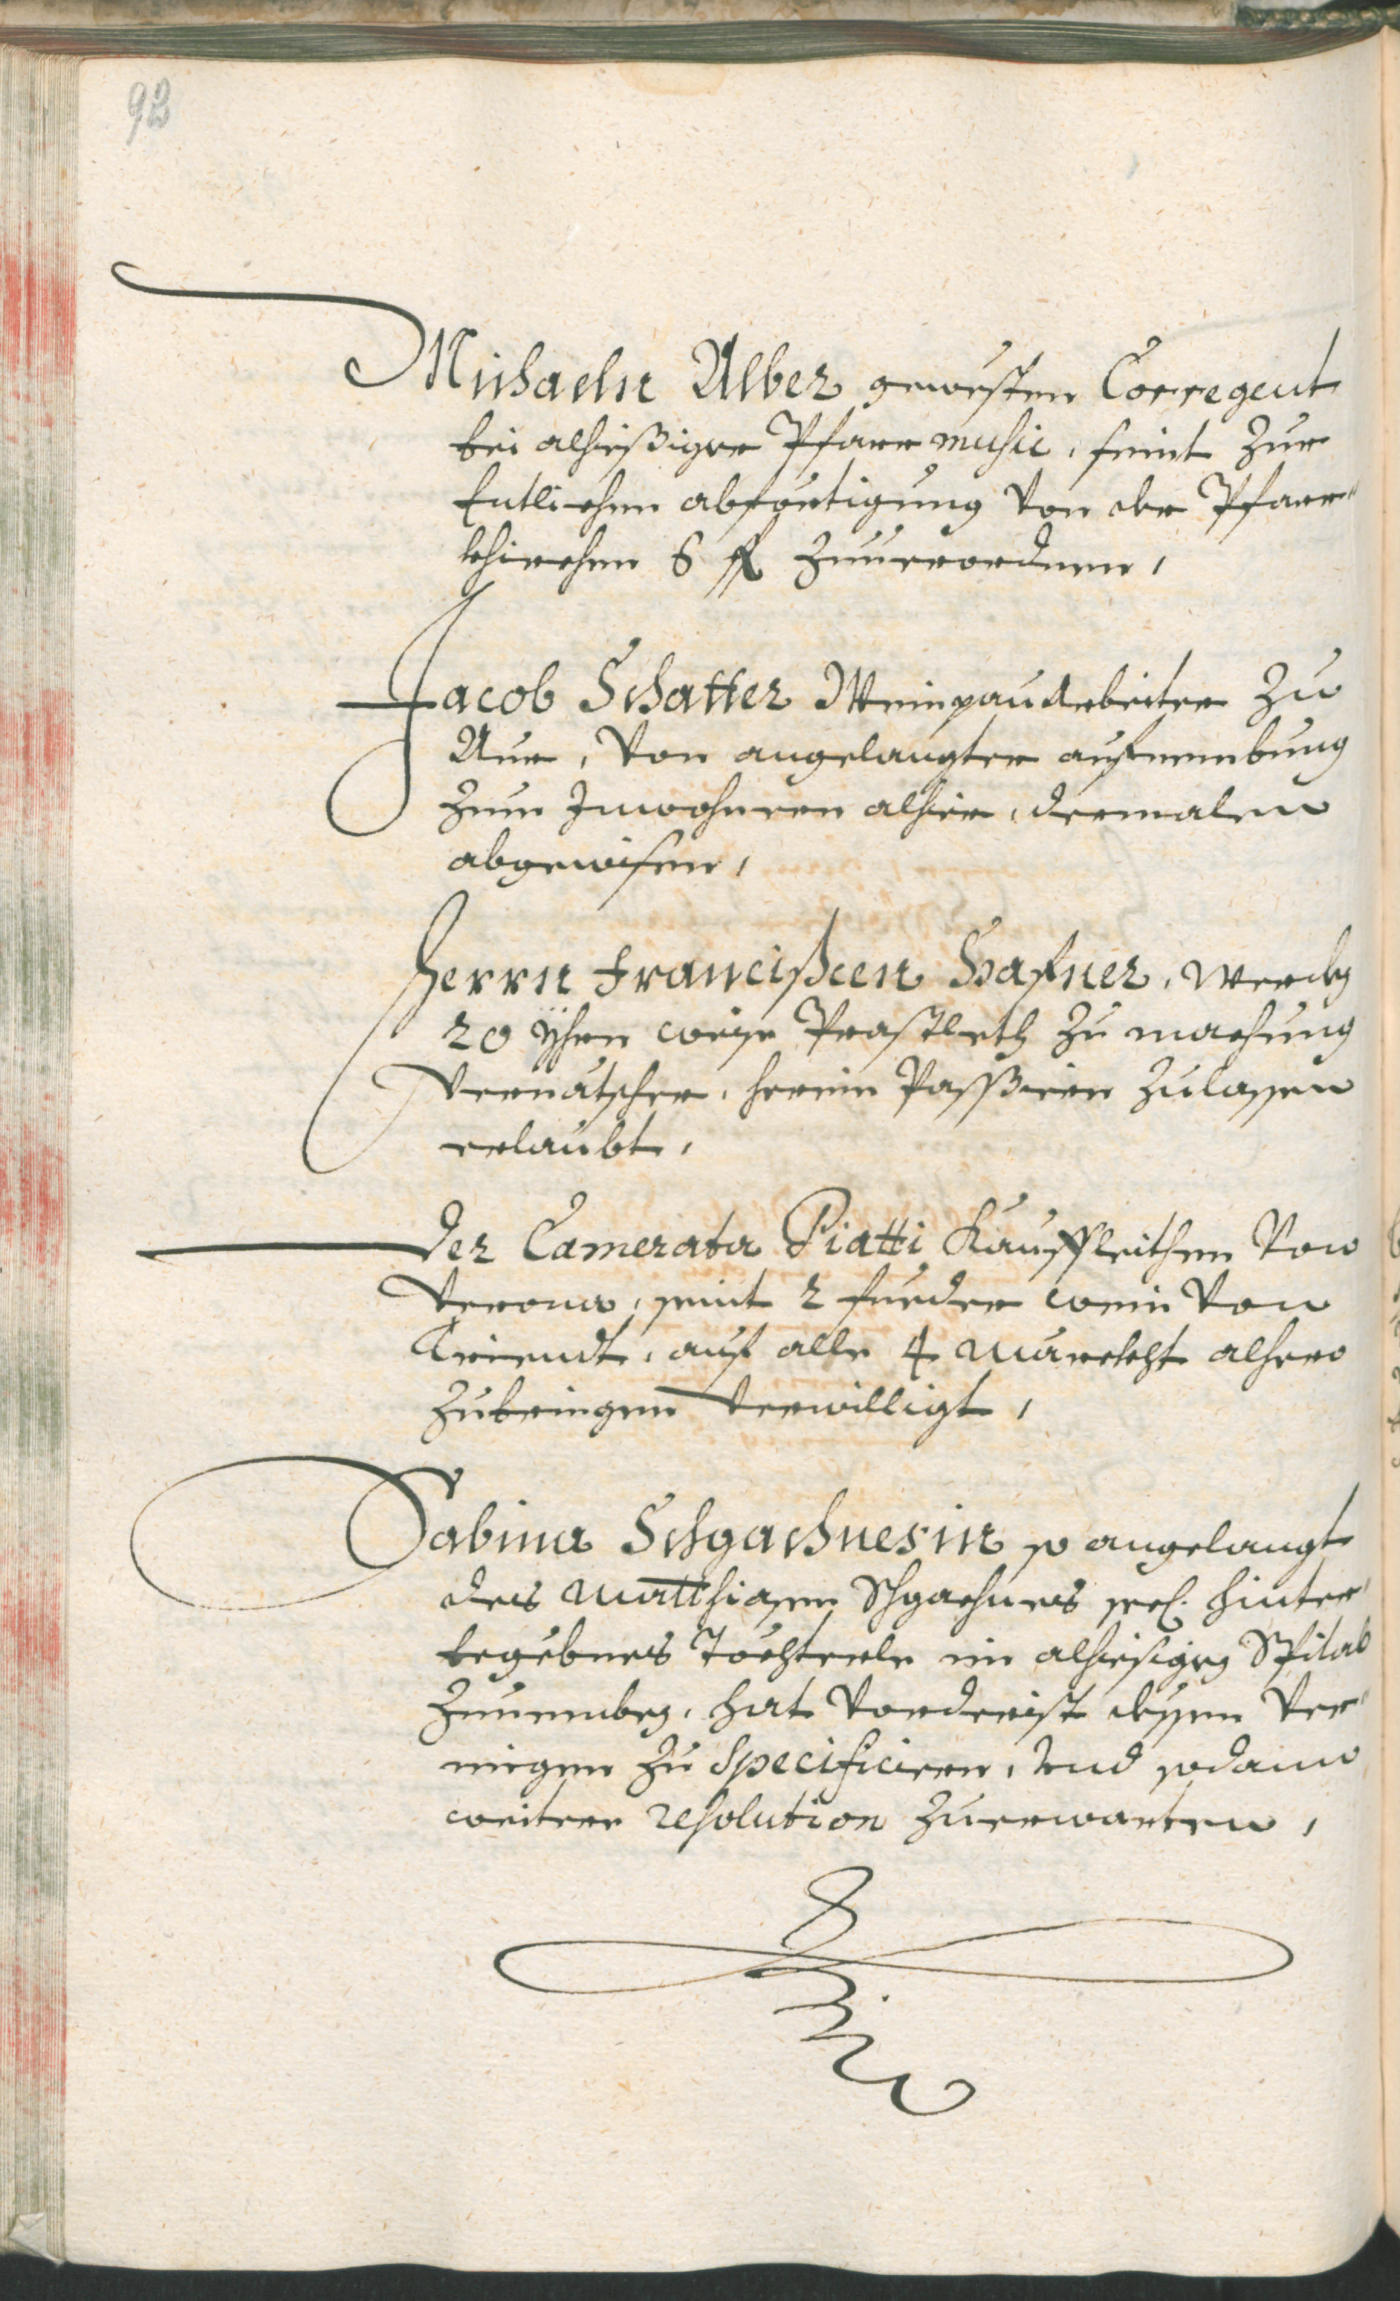 92
Michaeln Alber gewesten Corregent
bei alhießiger Pfarr music, seint zur
Entlichen abförtigung von der Pfarr¬
khirchen 6 fl zuuerordnen,
Jacob Schatter Weinpaudrbeiter zu
Aur, von angelangter aufnembung
zum Inwohneren alhier, dermalen
abgewisen,
Herrn Francißcen Hafner, werden
20 Yhrn weiße Praschleth zu machung
Vernatscher, herein Passieren zulassen
erlaubt,
Der Camerata Piatti Kauffleithen von
Verona, seint 2 fueder wein von
Triendt, auf alle 4 Märckht alhero
zubringen verwilligt,
Sabina Schgachnerin so angelangt
des Matthiasen Schgachners seel. hinter¬
legebnes Töchterle im alhiesigen Spital
zunemben, hat vorderist dessen Ver¬
mögen zu specificieren, vnd sodann
weitere resolution zuerwarten,